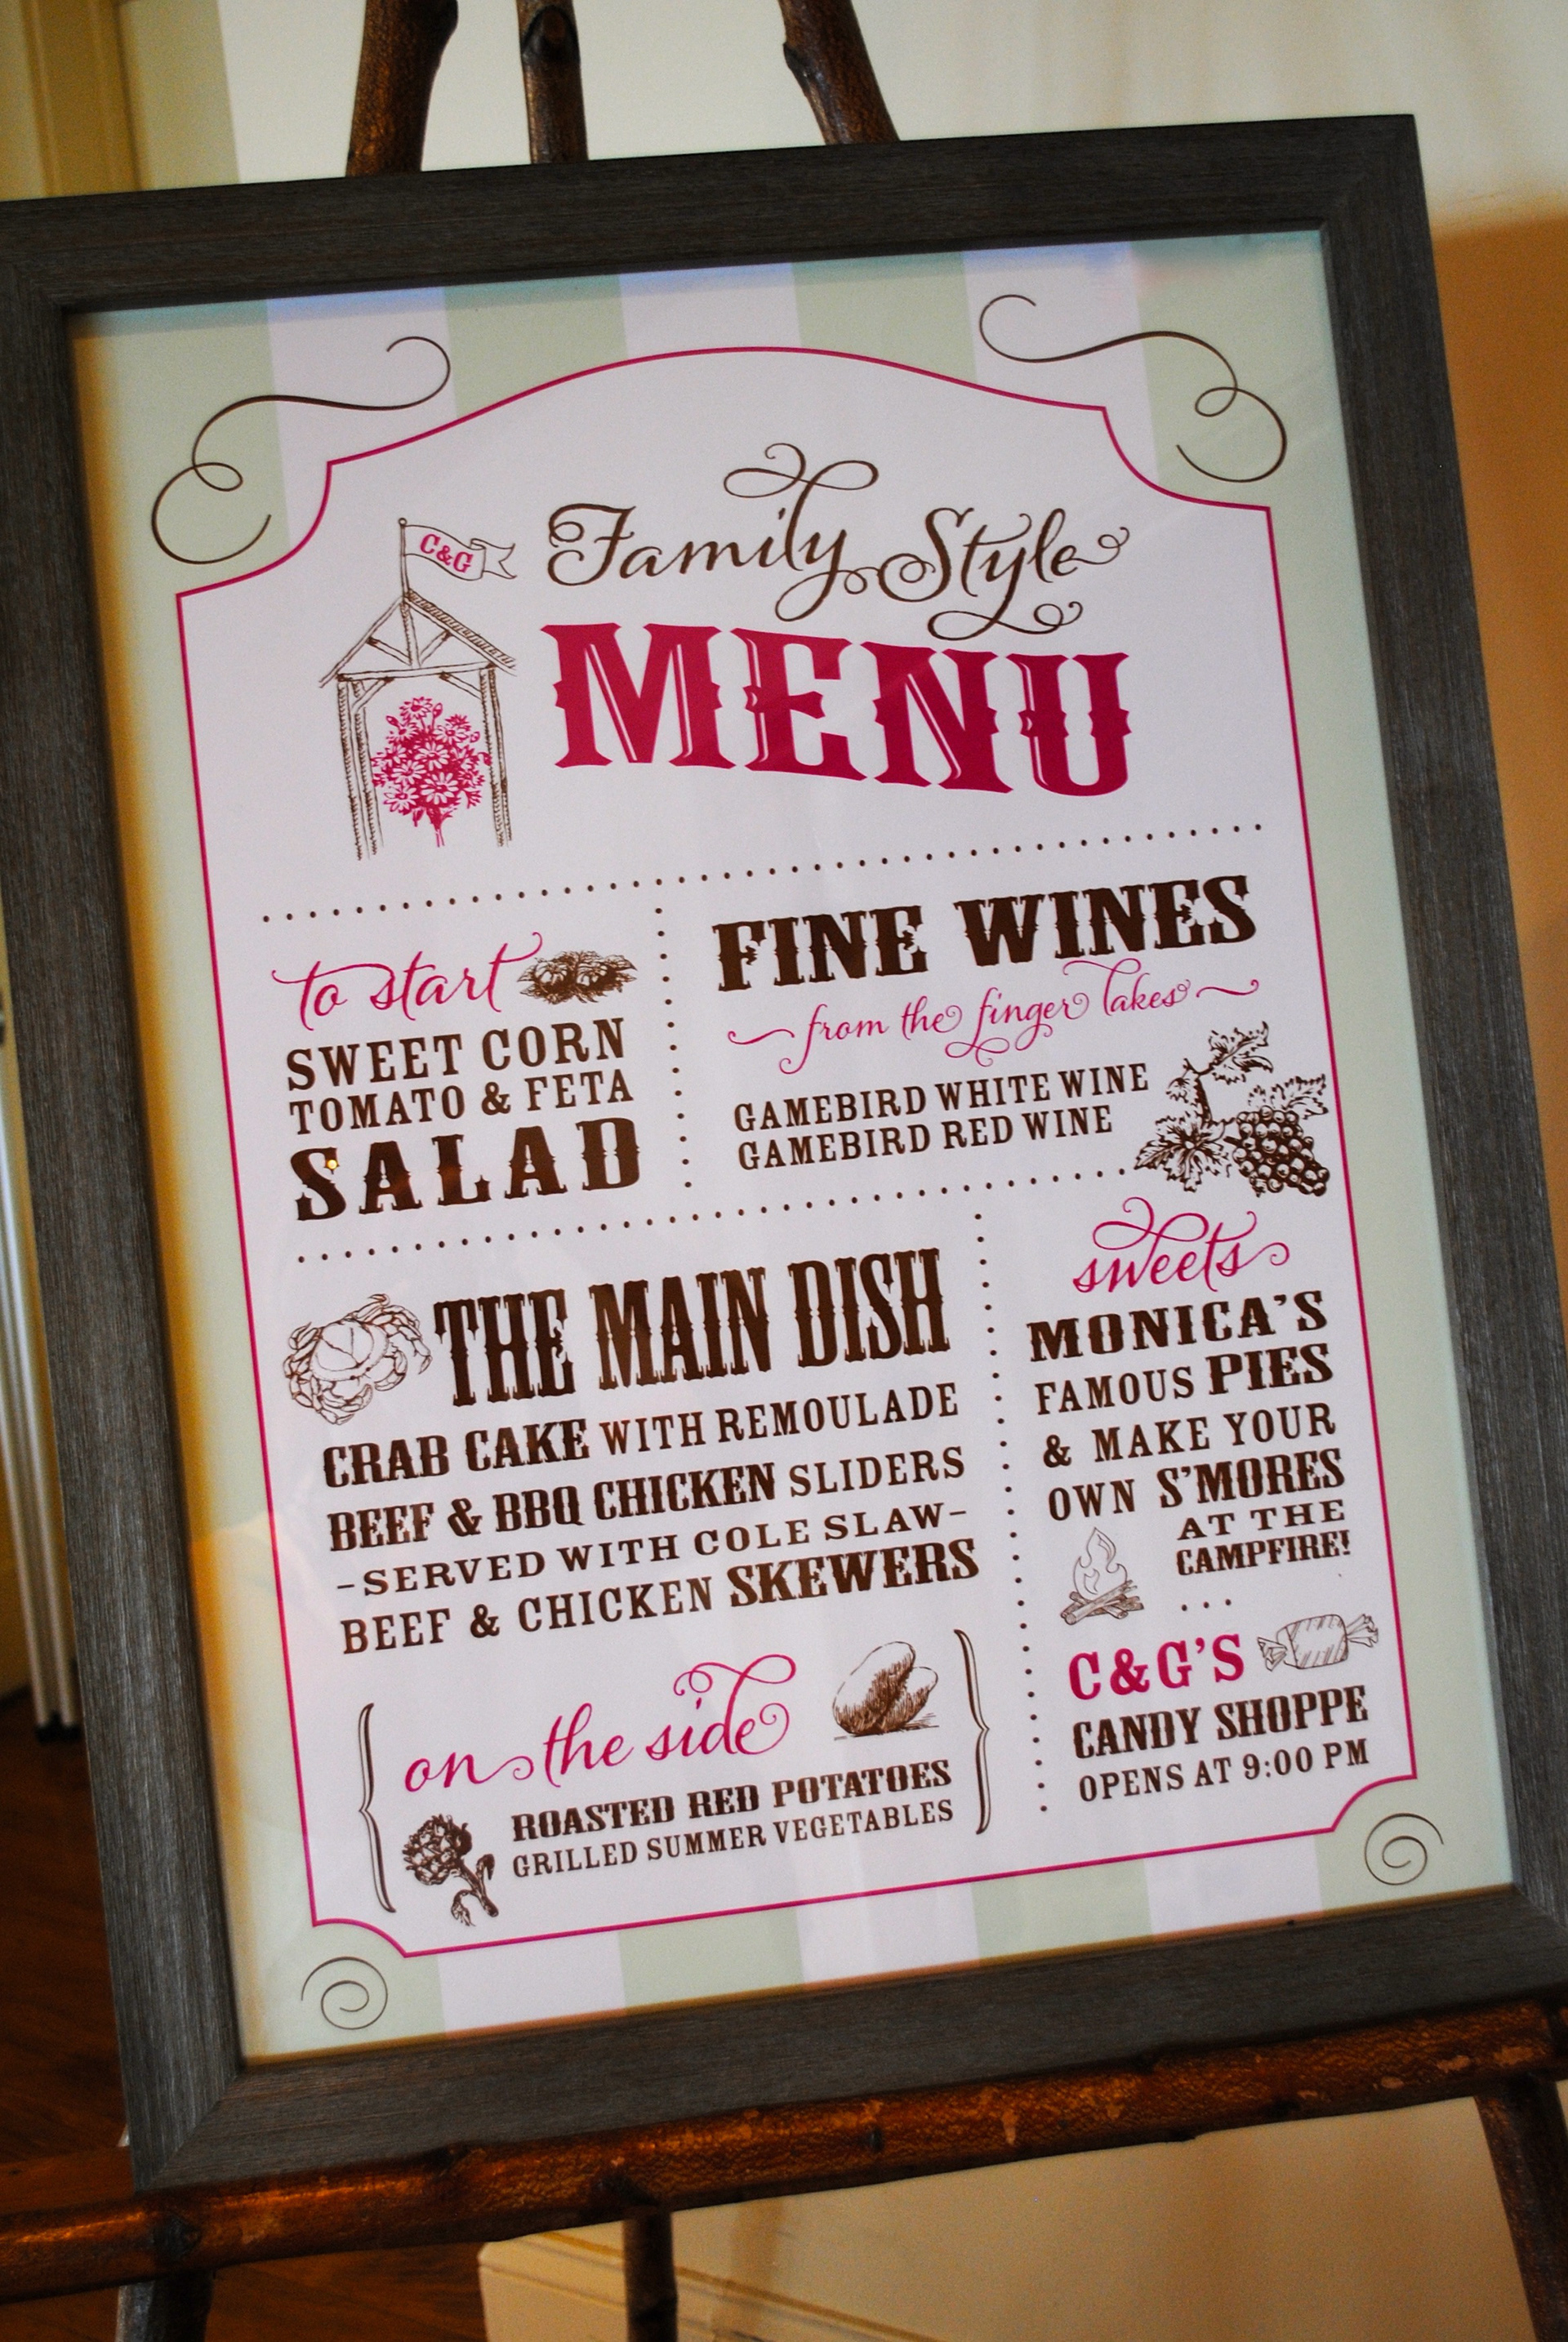 C&G
Family Style
MENU
to start
SWEET CORN
TOMATO & FETA
SALAD
FINE WINES
from the finger lakes
GAMEBIRD WHITE WINE
GAMEBIRD RED WINE
THE MAIN DISH
CRAB CAKE WITH REMOULADE
BEEF & BBQ CHICKEN SLIDERS
-SERVED WITH COLE SLAW-
BEEF & CHICKEN SKEWERS
on the side
ROASTED RED POTATOES
GRILLED SUMMER VEGETABLES
sweets
MONICA'S
FAMOUS PIES
& MAKE YOUR
OWN S'MORES
AT THE
CAMPFIRE!
...
C&G'S
CANDY SHOPPE
OPENS AT 9:00 PM